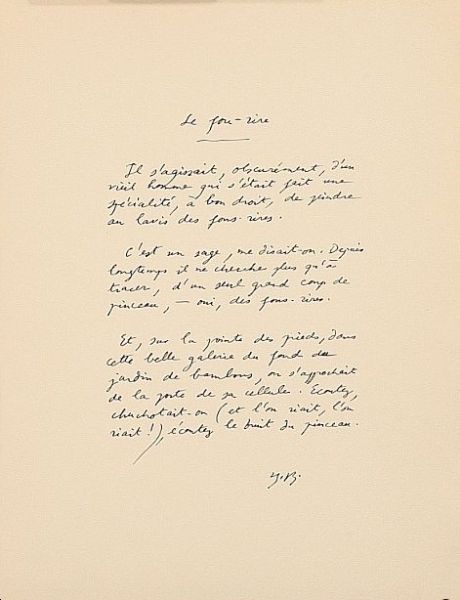 Le fou-rire
Il s'agissait, obscurément, d'un
vieil homme qui s'était fait une
spécialité, à bon droit, de peindre
au lavis des fous-rires.
C'est un sage, me disait-on. Depuis
longtemps il ne cherche plus qu'à
tracer, d'un seul grand coup de
pinceau, — oui, des fous-rires.
Et, sur la pointe des pieds, dans
cette belle galerie du fond du
jardin de bambous, on s'approchait
de la porte de sa cellule. Écoutez,
chuchotait-on (et l'on riait, l'on
riait!), écoutez le bruit du pinceau.
Y.B.